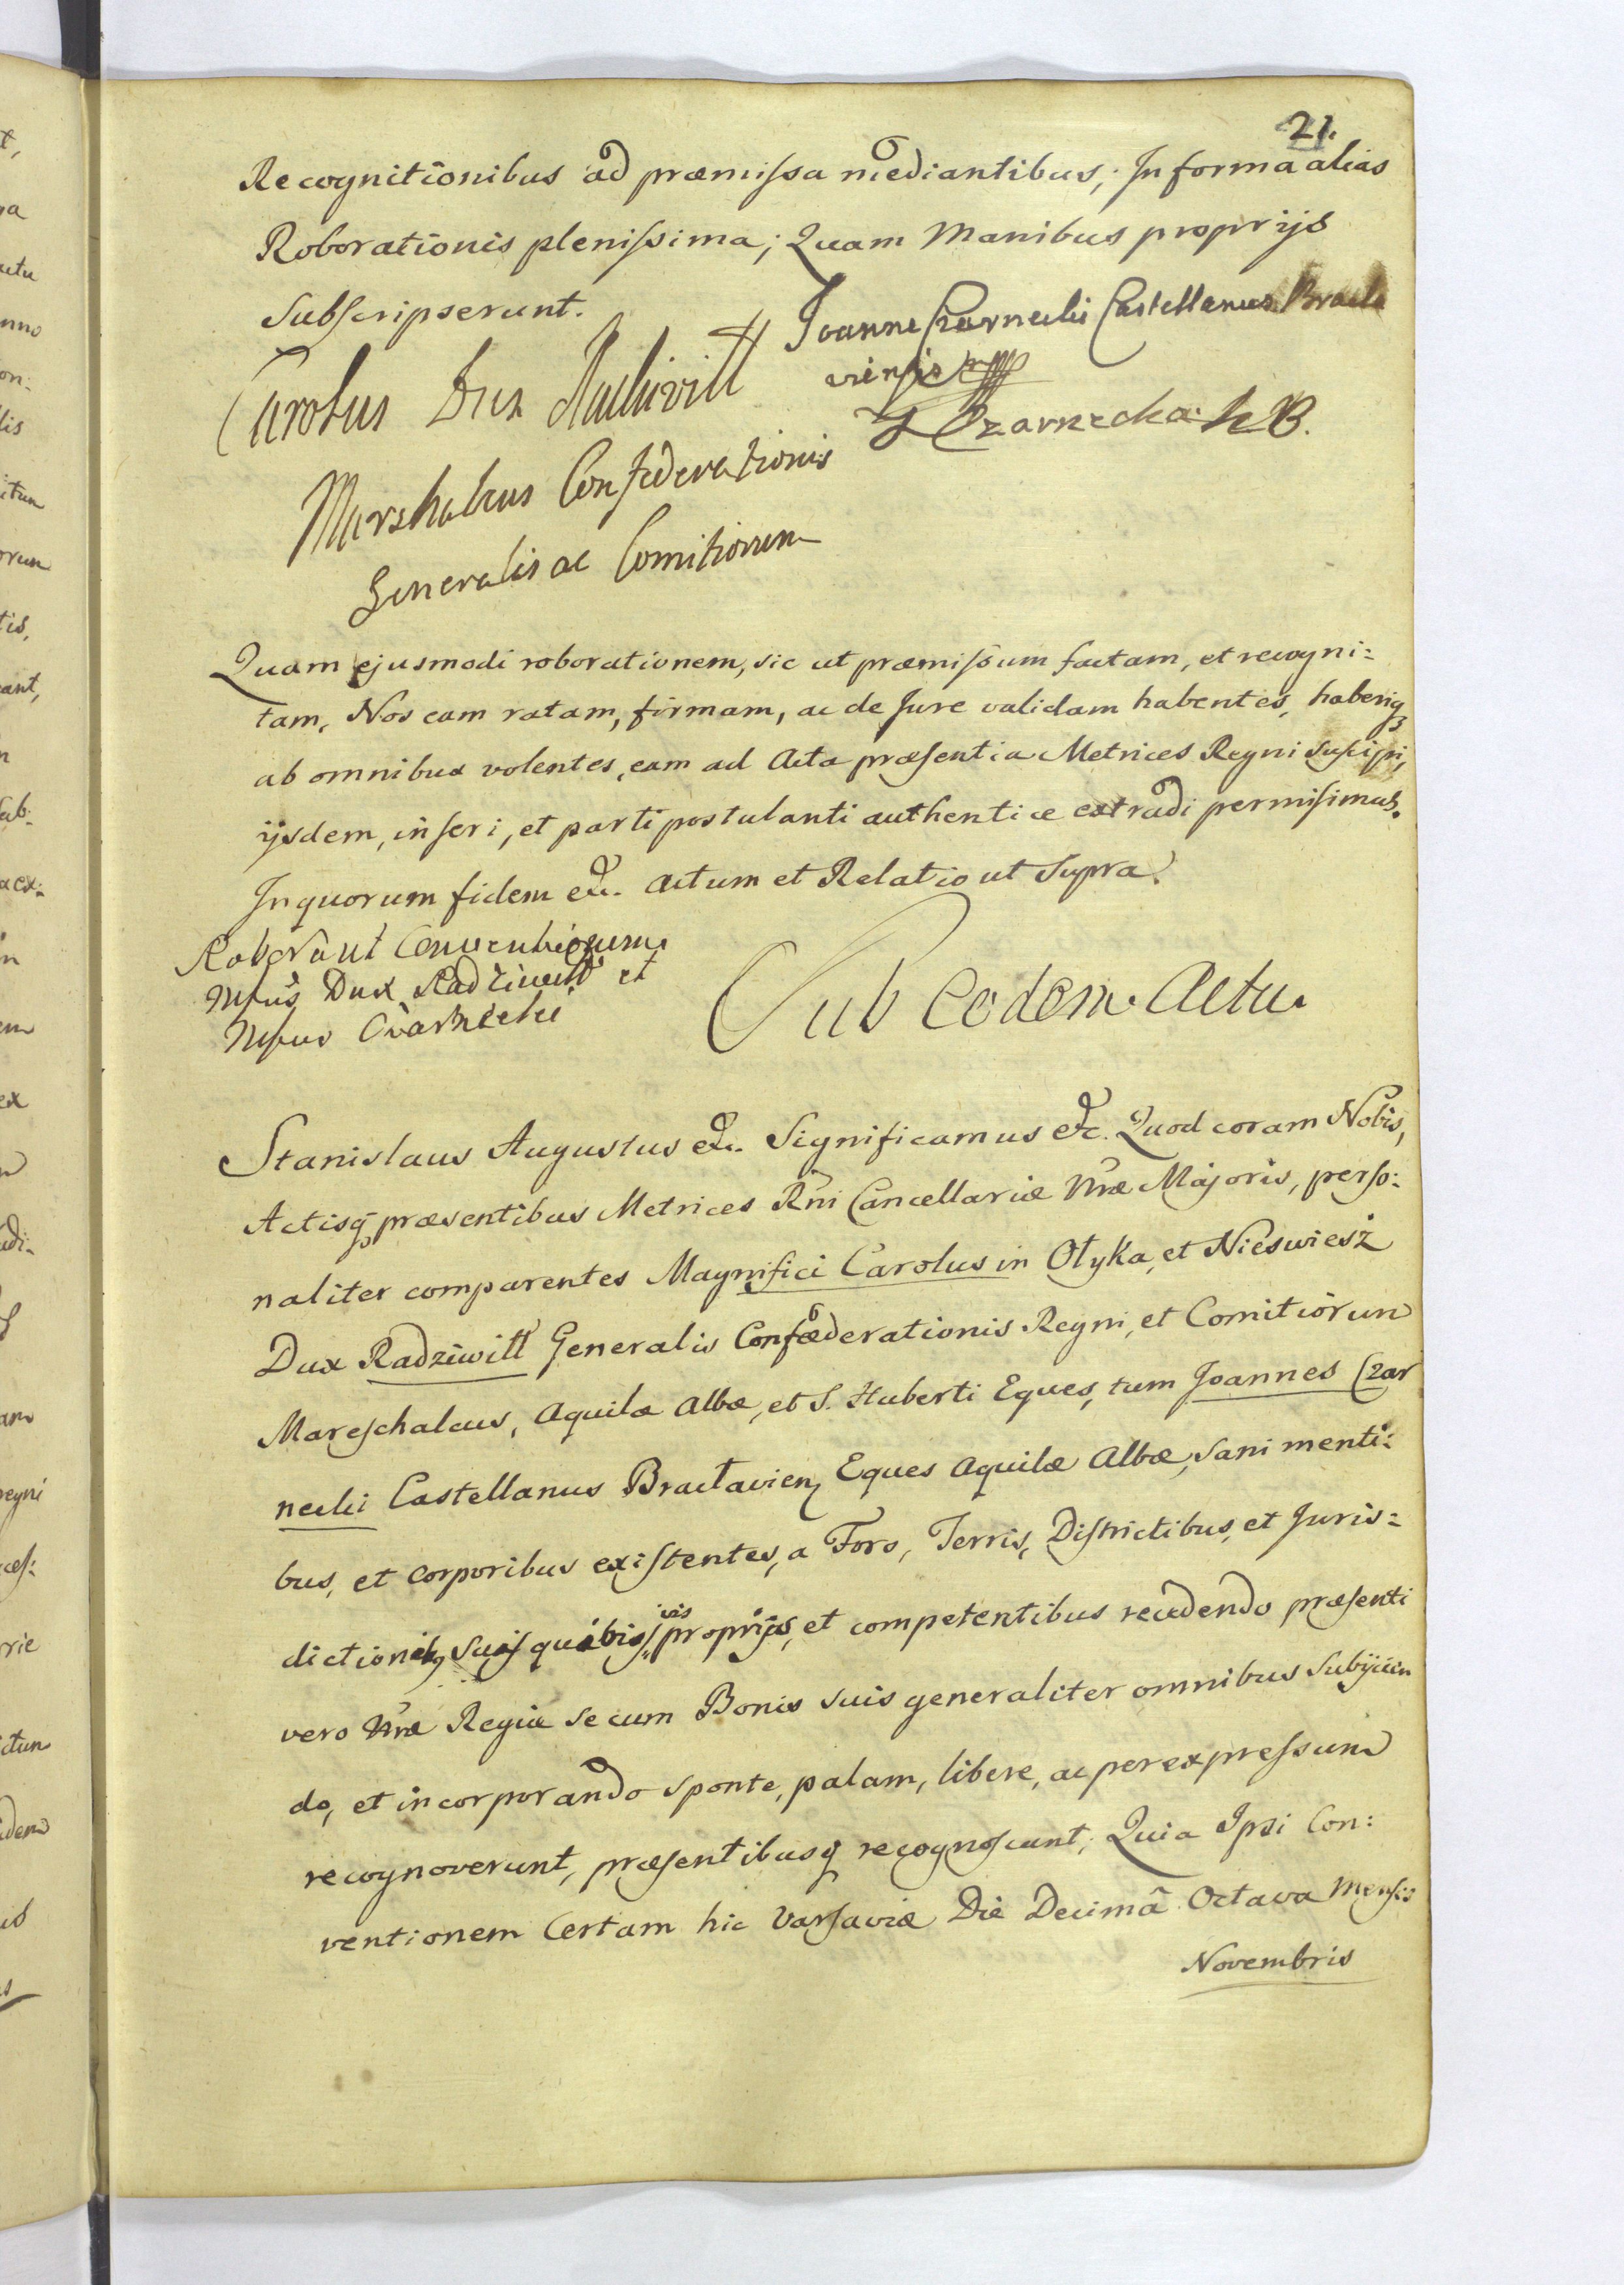 21.
Recognitionibus ad præmissa mediantibus; In forma alias
Roborationis plenissima; Quam Manibus proprijs
subscripserunt.
Joannes Czarnecki Castellanus Bracla
viensis mpp
Carolus Dux Radziwiłł
L Czarnecka K B.
Marshalcus Confederationis
Generalis ac Comitiorum
Quam ejusmodi roborationem, sic ut præmissum factam, et recogni:
tam, Nos eam ratam, firmam, ac de Jure validam habentes, haberiq3
ab omnibus volentes, eam ad Acta præsentia Metrices Regni suscipi,
ijsdem, inseri, et parti postulanti authentice extradi permisimus.
In quorum fidem etc. Actum et Relatio ut Supra.
Roborant Conventionem
Mfcus Dux Radziwiłł et
Mfcus Czarnecki
Sub eodem Actu
Stanislaus Augustus etc. Significamus etc. Quod coram Nobis,
Actisq præsentibus Metrices Rni Cancellariæ Nræ Majoris, perso:
naliter comparentes Magnifici Carolus in Ołyka, et Nieswiesż
Dux Radziwiłł Generalis Confœderationis Regni, et Comitiorum
Mareschalcus, Aquilæ Albæ, et S. Huberti Eques, tum Joannes Czar
necki Castellanus Bracłavien Eques Aquilæ Albæ, sani menti:
bus, et corporibus existentes, a Foro, Terris, Districtibus, et Juris:
dictionib9 suis quibisvis proprijs, et competentibus recedendo præsenti
vero Nræ Regiæ se cum Bonis suis generaliter omnibus subijcien
do, et incorporando sponte, palam, libere, ac per expressum
recognoverunt, præsentibusq recognoscunt; Quia Ipsi Con:
ventionem Certam hic Varsaviæ Die Decimâ Octava Mensis
Novembris